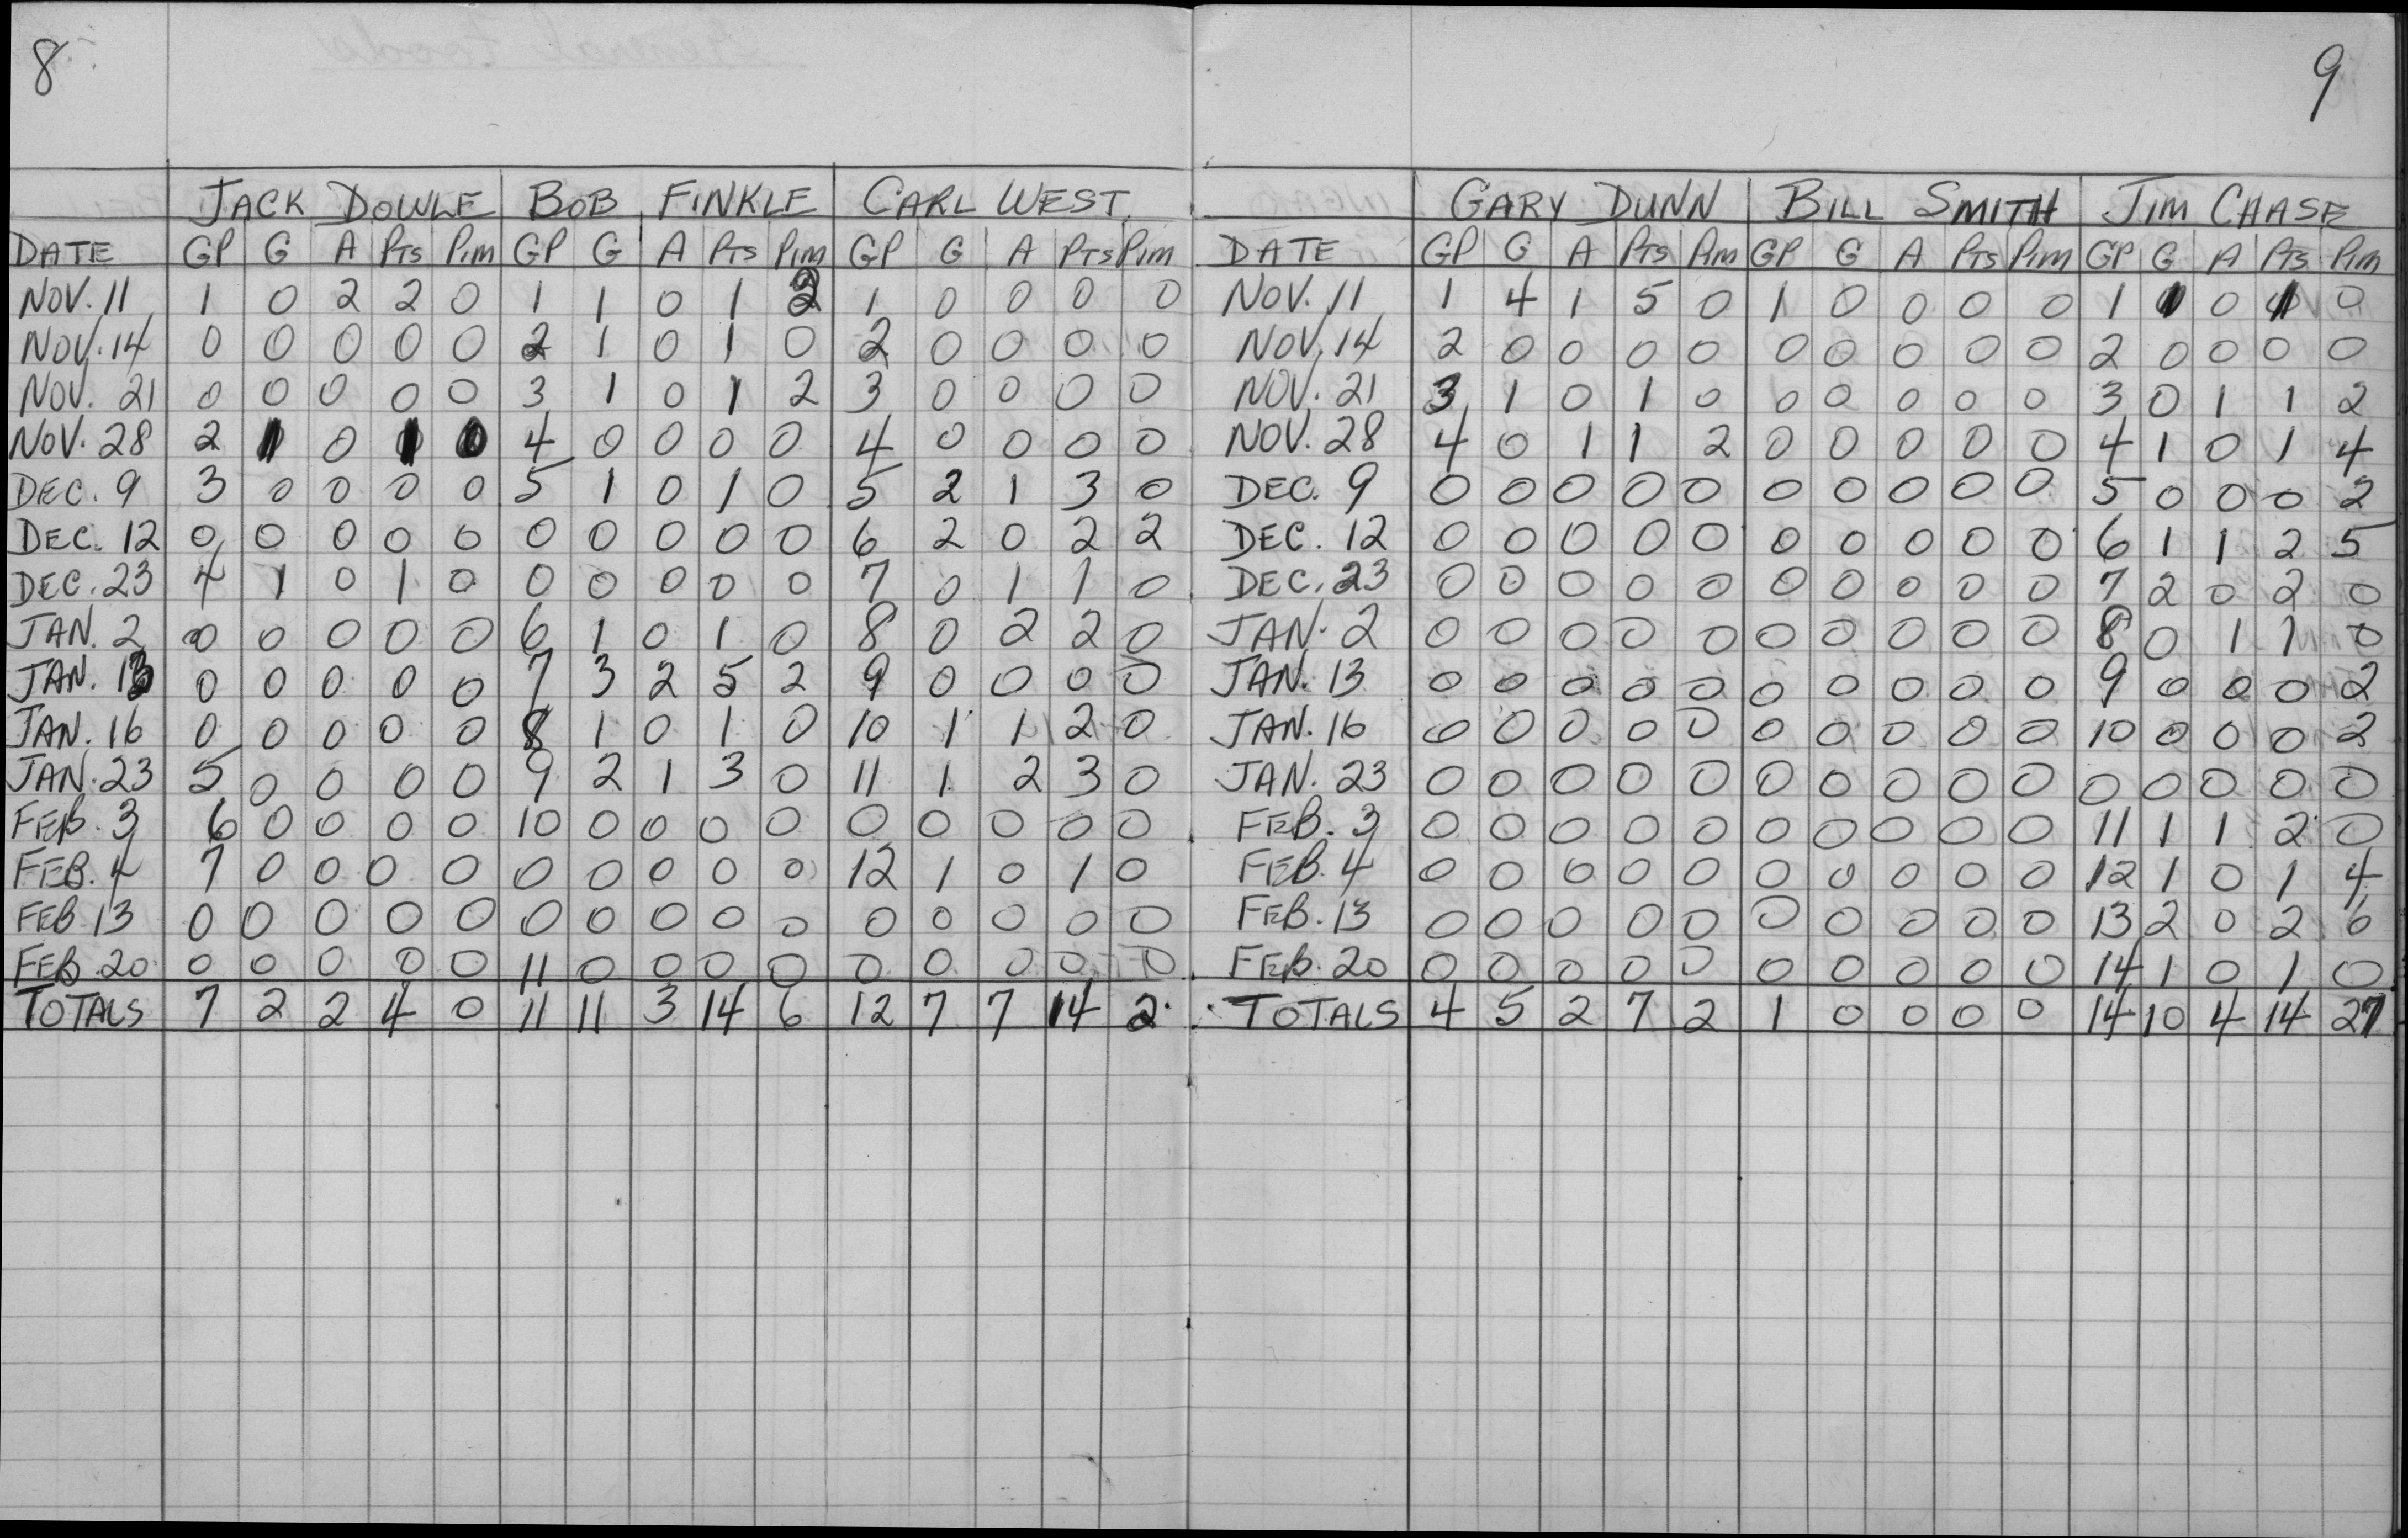 8
JACK DOWLE BOB FINKLE CARL WEST
DATE GP G A Pts Pim GP G A Pts Pim GP G A Pts Pim
NOV. 11 1 0 2 2 0 1 1 0 1 2 1 0 0 0 0
NOV. 14 0 0 0 0 0 2 1 0 1 0 2 0 0 0 0
NOV. 21 0 0 0 0 0 3 1 0 1 2 3 0 0 0 0
NOV. 28 2 1 0 1 0 4 0 0 0 0 4 0 0 0 0
DEC. 9 3 0 0 0 0 5 1 0 1 0 5 2 1 3 0
DEC. 12 0 0 0 0 0 0 0 0 0 0 6 2 0 2 2
DEC. 23 4 1 0 1 0 0 0 0 0 0 7 0 1 1 0
JAN. 2 0 0 0 0 0 6 1 0 1 0 8 0 2 2 0
JAN. 13 0 0 0 0 0 7 3 2 5 2 9 0 0 0 0
JAN. 16 0 0 0 0 0 8 1 0 1 0 10 1 1 2 0
JAN. 23 5 0 0 0 0 9 2 1 3 0 11 1 2 3 0
FEB. 3 6 0 0 0 0 10 0 0 0 0 0 0 0 0 0
FEB. 4 7 0 0 0 0 0 0 0 0 0 12 1 0 1 0
FEB 13 0 0 0 0 0 0 0 0 0 0 0 0 0 0 0
FEB. 20 0 0 0 0 0 11 0 0 0 0 0 0 0 0 0
TOTALS 7 2 2 4 0 11 11 3 14 6 12 7 7 14 2
9
GARY DUNN BILL SMITH JIM CHASE
DATE GP G A Pts Pim GP G A Pts Pim GP G A Pts Pim
NOV. 11 1 4 1 5 0 1 0 0 0 0 1 1 0 1 0
NOV. 14 2 0 0 0 0 0 0 0 0 0 2 0 0 0 0
NOV. 21 3 1 0 1 0 0 0 0 0 0 3 0 1 1 2
NOV. 28 4 0 1 1 2 0 0 0 0 0 4 1 0 1 4
DEC. 9 0 0 0 0 0 0 0 0 0 0 5 0 0 0 2
DEC. 12 0 0 0 0 0 0 0 0 0 0 6 1 1 2 5
DEC. 23 0 0 0 0 0 0 0 0 0 0 7 2 0 2 0
JAN. 2 0 0 0 0 0 0 0 0 0 0 8 0 1 1 0
JAN. 13 0 0 0 0 0 0 0 0 0 0 9 0 0 0 2
JAN. 16 0 0 0 0 0 0 0 0 0 0 10 0 0 0 2
JAN. 23 0 0 0 0 0 0 0 0 0 0 0 0 0 0 0
FEB. 3 0 0 0 0 0 0 0 0 0 0 11 1 1 2 0
FEB. 4 0 0 0 0 0 0 0 0 0 0 12 1 0 1 4
FEB. 13 0 0 0 0 0 0 0 0 0 0 13 2 0 2 6
FEB. 20 0 0 0 0 0 0 0 0 0 0 14 1 0 1 0
TOTALS 4 5 2 7 2 1 0 0 0 0 14 10 4 14 27